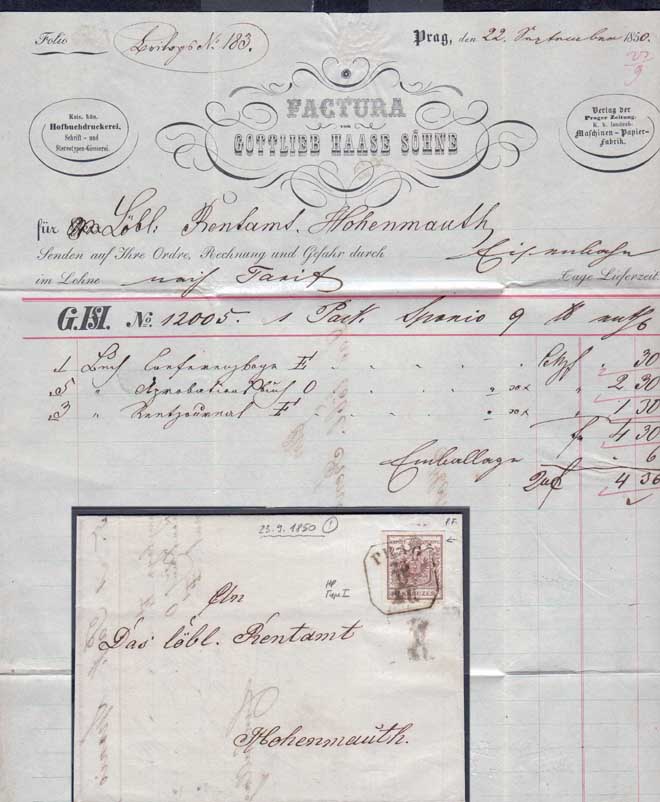 Folio Beilage No 183. Prag, den 22. September 1850.
23/9
FACTURA
VON
GOTTLIEB HAASE SÖHNE
Kais. kön.
Hofbuchdruckerei,
Schrift- und
Stereotypen-Giesserei.
Verlag der
Prager Zeitung.
K. k. landesb.
Maschinen-Papier-
Fabrik.
für Löbl: Rentamt. Hohenmauth
Senden auf Ihre Ordre, Rechnung und Gefahr durch Eisenbahn
im Lohne nach Tarif Tage Lieferzeit.
G.H.S. No. 12005. 1 Pack. 9
1 Buch E 30
5 " O " 2 30
3 " Rentjournal E " 1 30
4 30
Emballage 6
4 36
23.9.1850 1
P.F.
HP
Type I
PRAG
KREUZER
An
Das löbl. Rentamt
Hohenmauth.